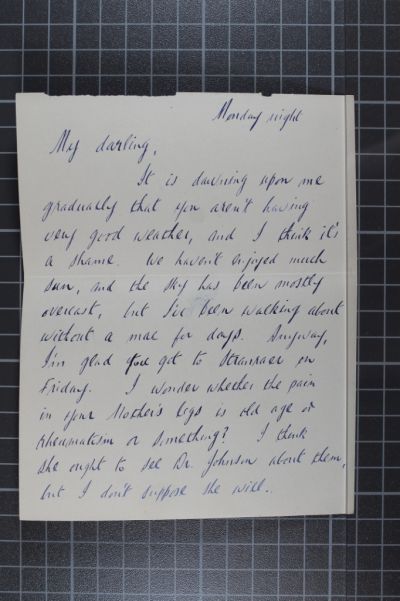 Monday night
My darling,
It is dawning upon me
gradually that you aren't having
very good weather, and I think it's
a shame. We haven't enjoyed much
sun, and the sky has been mostly
overcast, but I've been walking about
without a mac for days. Anyway,
I'm glad you got to Stranraer on
Friday. I wonder whether the pain
in your Mother's legs is old age or
rheumatism or something? I think
she ought to see Dr. Johnson about them,
but I don't suppose she will..